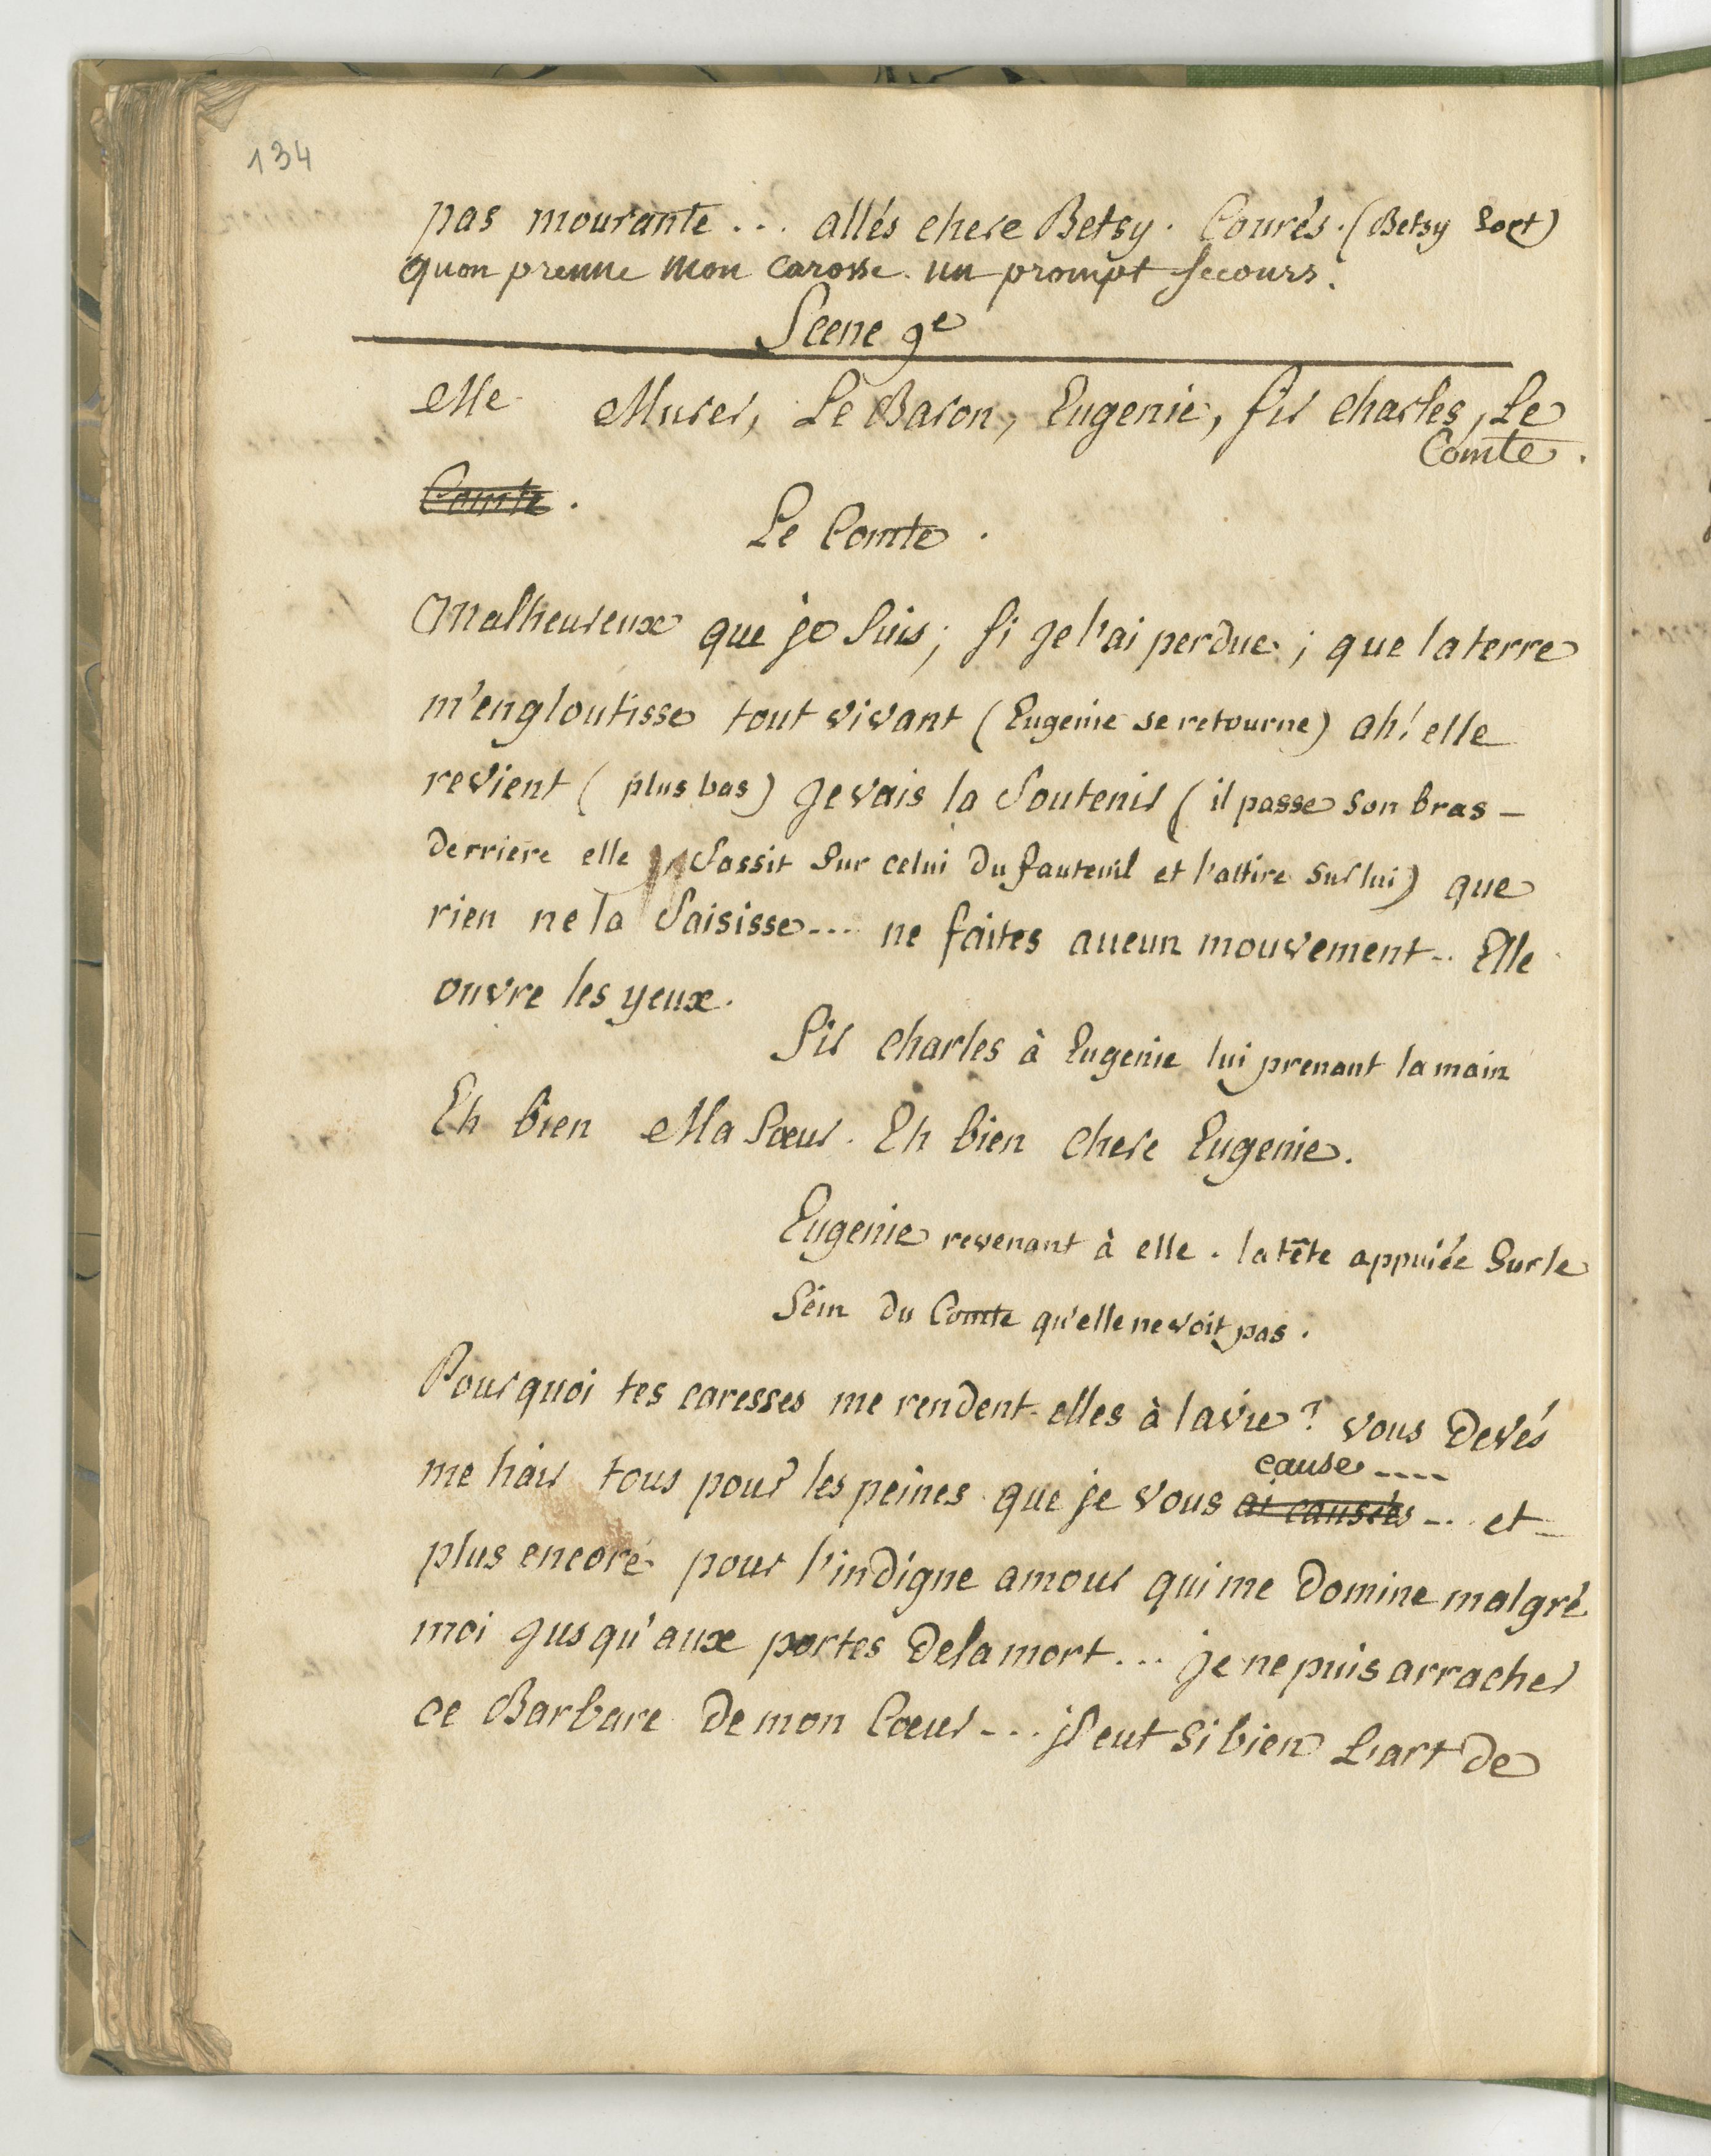 134
pas mourante... allés chere Betsy. Courés. (Betsy sort)
quon prenne mon carosse. un prompt secours.
Scene 9e
Me Murer, Le Baron, Eugenie, sir Charles, Le
Comte.
Comte.
Le Comte.
Malheureux que je suis; si je l'ai perdue; que la terre
m'engloutisse tout vivant (Eugenie se retourne) ah! elle
revient (plus bas) je vais la soutenir (il passe son bras -
derriere elle s'assit sur celui du fauteuil et l'attire sur lui) que
rien ne la saisisse... ne faites aucun mouvement.. Elle
ouvre les yeux.
Sir Charles à Eugenie lui prenant la main
Eh bien Ma soeur. Eh bien chere Eugenie.
Eugenie revenant à elle. la tête appuiée sur le
sein du Comte qu'elle ne voit pas.
Pourquoi tes caresses me rendent-elles à la vie? vous devés
me haïr tous pour les peines que je vous ai causées... et
cause....
plus encore pour l'indigne amour qui me domine malgré
moi jusqu'aux portes de la mort... je ne puis arracher
ce Barbare de mon Coeur... il eut si bien L'art de